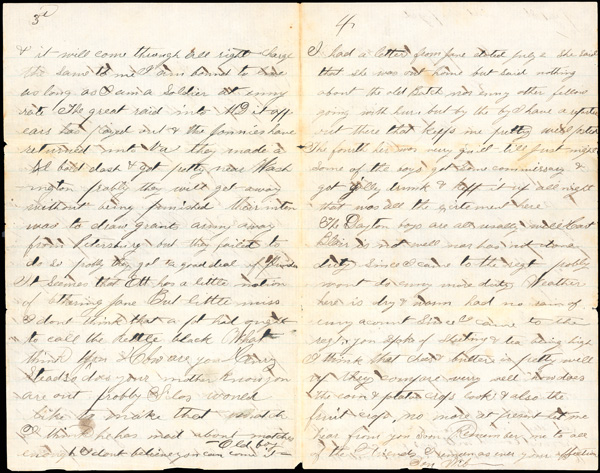 3d
& it will come through all right charge
the same to me I am bound to
as long as I am a Soldier at enny
rate The great raid into MD it
ears has played out & the Johnnies have
returned into Va they made a
bold dash & got pretty near Wash
ington probly they will get away
without being punished their inten
was to draw grants army away
from Petersburg but they failed to
do so probly they got a good deal of plunder
It Seemes that Ett has a little notion
of Jane But little miss
I dont think that a pot had ought
to call the kettle black What
think you & How are you
does your mother know you
are out probly Silas would
like to make that match
I think he has said about matches
enough & dont believe you can come it
Old boy
4
I had a letter from Jane dated July 2 She said
that she was at home but said nothing
about the old Batch nor anny other fellow
going with her but by the by I have a
out there that keeps me pretty well posted
The fourth here was very quiet till first night
some of the boys got some commissary &
got jolly drunk & kept it up all night
that was all the excitement here
The Dayton boys are all usually well Capt
Blair is not well nor has not done
duty Since I came to the regt probly
wont do enny more duty Weather
here is dry & warm had no rain of
enny acount Since I came to the
regt you Spoke of Sheeting & tea being high
I think that and butter is pretty well
up they compare very well how does
the corn & potato crops look & also the
fruit crop no more at present
hear from you soon Remember me to all
of the Friends & I remain as ever your affection